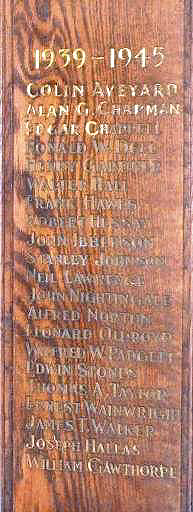 1939-1945
COLIN AVEYARD
ALAN G. CHAPMAN
EDGAR CHAPPELL
DONALD W. DELL
HENRY
WALTER HALL
FRANK HAWES
HERBERT
JOHN IBBETSON
STANLEY JOHNSON
NEIL LAWRENCE
JOHN NIGHTINGALE
ALFRED NORTON
LEONARD OLDROYD
WILFRED W. PADGETT
EDWIN STONES
THOMAS A. TAYLOR
ERNEST WAINWRIGHT
JAMES T. WALKER
JOSEPH HALLAS
WILLIAM GAWTHORPE